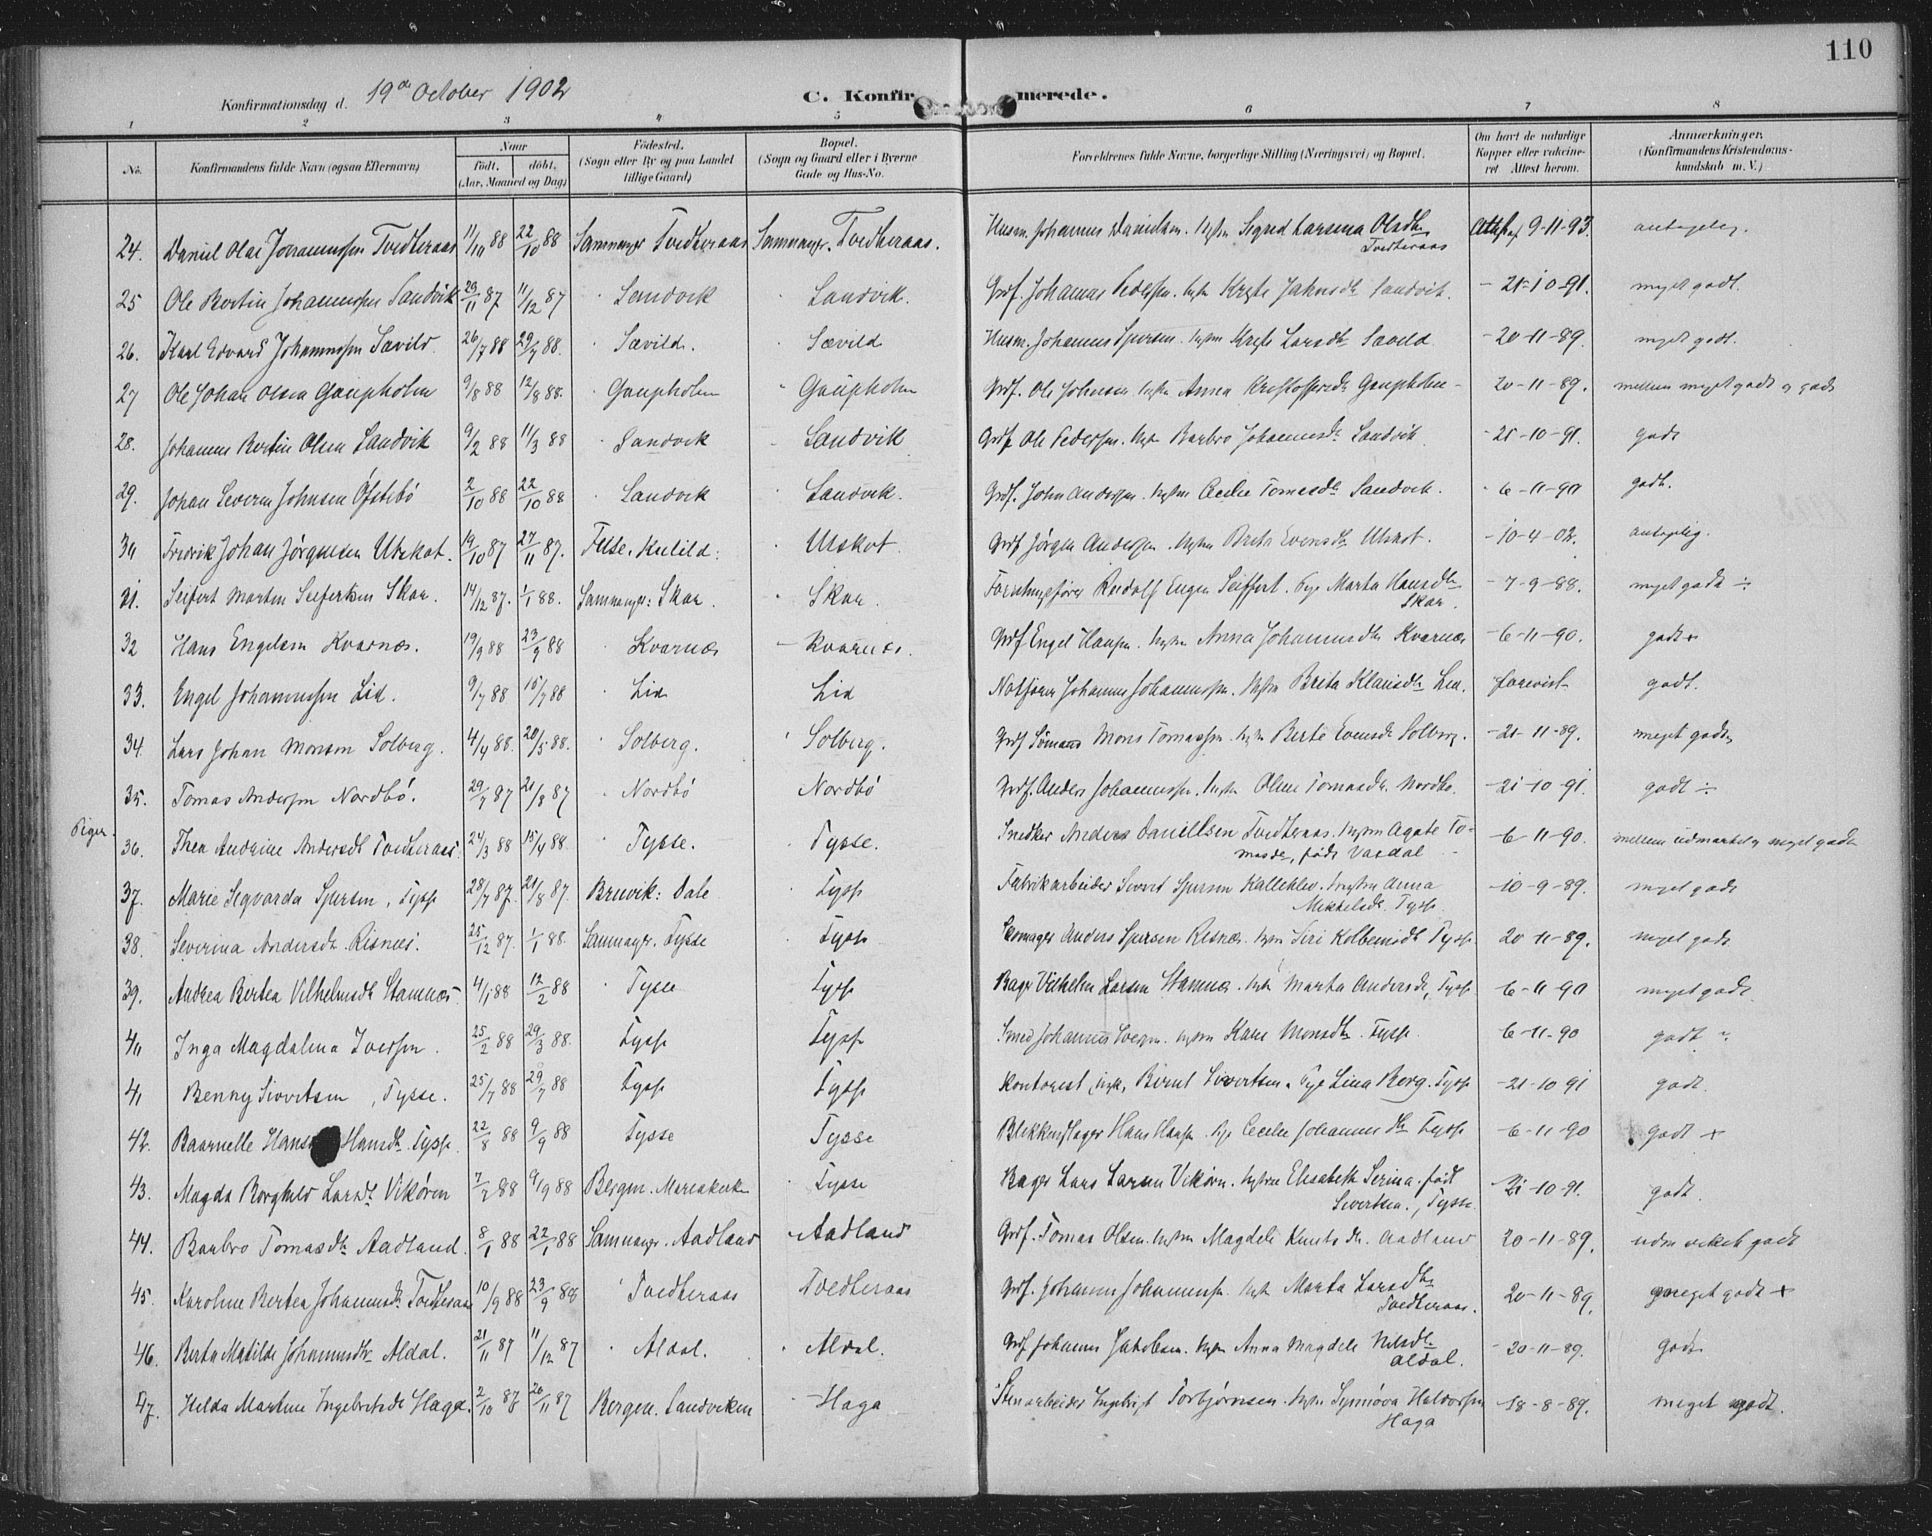 110
Konfirmationsdag d. 19de October 1902
C. Konfirmerede.
1 2 3 4 5 6 7 8
No. Konfirmandens fulde Navn (ogsaa Efternavn) Naar født, døbt. (Aar, Maaned og Dag) Fødested. (Sogn eller By og paa Landet tillige Gaard) Bopæl. (Sogn og Gaard eller i Byerne Gade og Hus-No. Forældrenes fulde Navne, borgerlige Stilling (Næringsvei) og Bopæl. Om havt de naturlige Kopper eller vaccineret Attest herom. Anmerkninger. (Konfirmandens Kristendomskundskab m. V.)
24. Daniel Olai Johannessen Tvedteraas 11/10 88 22/10 88 Samnanger Tvedteraas Samnanger. Tvedteraas. Husm. Johannes Danielsen. Hustru Sigrid Larsina Olsdtr Tvedteraas Attest 9-11-93. antagelig.
25 Ole Bertin Johannessen Sandvik 29/11 87 11/12 87 " Sandvik " Sandvik. Grdf. Johannes Pedersen. hustru Sandvik. - 21-10-91. meget godt.
26. Karl Edvard Johannessen Sævild. 26/7 88 29/7 88. " Sævild. " Sævild Husm. Johannes Sjursen. hustru Larsdtr Sæveld - 20-11-89. meget godt.
27 Ole Johan Olsen Gaupholm 9/8 88 12/8 88. " Gaupholm " Gaupholm Grdf. Ole Johnsen. hustru Anna Gaupholm - 20-11-89. mellem meget godt og godt
28. Johannes Bertin Olsen Sandvik 9/2 88 11/3 88 " Sandvik " Sandvik Grdf. Ole Pedersen. hustru Barbro Johannesdtr Sandvik - 21-10-91. godt
29. Johan Severin Johnsen Øfstebö 2/10 88 22/10 88 " Sandvik " Sandvik. Grdf. John Andersen. hustru Cecilie Tomasdtr Sandvik. - 6-11-90 godt.
30 Fredrik Johan Jörgensen Utskot. 19/10 87 27/11 87. Fuse. " Utskot Grdf Jörgen Andersen. hustru Brita Evensdtr Utskot. - 10-4-02. antagelig.
31. Seifert Martin Seifertsen Skar. 14/12 87. 1/1 88. Samnanger: Skar. " Skar. Rudolf Eugen Seiffert. Pige Marta Hansdtr Skar. - 7-9-88. meget godt ÷
32 Hans Engelsen Kvarnæs. 19/9 88 23/9 88 " Kvarnæs - Kvarnæs. Grdf Engel Hansen. hustru Anna Johannesdtr Kvarnæs - 6-11-90. godt +
33. Engel Johannessen Lid. 9/7 88 15/7 88 " Lid Lid Johannes Johannessen. hustru Brita Klausdtr Lid. forevist godt.
34. Lars Johan Monsen Solberg. 4/4 88. 20/5 88. " Solberg. " Solberg. Grdf Mons Tomassen. hustru Berte Evensdtr Solberg. - 21-11-89. meget godt
35. Tomas Andersen Nordbö. 29/7 87 21/8 87 " Nordbö Nordbö Grdf. Anders Johannessen. hustru Oline Tomasdtr. Nordbö. - 21-10-91. godt ÷
Piger.
36. Thea Andrine Andersdtr Tvedteraas. 24/3 88 15/4 88. " Tysse. " Tysse. Snedker Anders Daniellsen Tvedteraas. hustru Agate Tomasdtr, født Vardal - 6-11-90. mellem udmærket og meget godt
37. Marie Sigvarda Sjursen, Tysse 28/7 87. 21/8 87. Bruvik: Dale " Tysse Fabrikarbeider Sivert Sjursen Kallekleiv. hustru Anna Mikkelsdtr. Tysse. - 10-9-89. meget godt
38. Severina Andersdtr. Risnæs. 25/12 87. 1/1 88. Samnanger. Tysse " Tysse Anders Sjursen Risnæs. hustru Siri Kolbensdtr Tysse 20-11-89. meget godt
39. Andrea Bertea Vilhelmsdtr Stamnæs 4/1 88 12/2 88 " Tysse " Tysse Bager Vilhelm Larsen Stamnæs. hustru Marta Andersdtr, Tysse 6-11-90 meget godt.
40 Inga Magdalena Iversen. 25/2 88 29/3 88. " Tysse " Tysse Smed Johannes Iversen. hustru Kari Monsdtr. Tysse. 6-11-90 godt
41 Benny Sivertsen, Tysse. 25/7 88 29/7 88 " Tysse " Tysse Kontorist, ugift, Bernt Sivertsen. Pige Lina Berg. Tysse - 21-10 91 godt.
42. Baarnelle Hansdtr. Tysse. 22/8 88 9/9 88 " Tysse " Tysse Blikkenslager Hans Hansen. Cecilie Johannesdtr Tysse - 6-11-90 godt +
43. Magda Borghild Larsdtr Vikören 7/2 88 9/9 88 Bergen. Mariakirke " Tysse Bager Lars Larsen Vikören. hustru Elisabeth Serina, født Sivertsen., Tysse. 21-10-91. godt.
44. Barbro Tomasdtr Aadland. 8/1 88 22/1 88 Samnanger. Aadland " Aadland Grdf. Tomas Olsen. hustru Magdeli Knutsdtr. Aadland 20-11-89. udmerket godt
45. Karoline Bertea Johannesdtr Tvedteraas 10/9 88 23/9 88 " Tvedteraas Tvedteraas Grdf. Johannes Johannessen. hustru Marta Larsdtr Tvedteraas. 20-11-89. meget godt +
46. Berta Matilde Johannesdtr Aldal. 21/11 87 11/12 87 " Aldal. " Aldal. Grdf Johannes Jakobsen. hustru Anna Magdeli Nilsdtr Aldal. - 20-11-89. godt
47. Helda Martine Ingebrigtsdtr Haga. 2/10 87 20/11 87 Bergen. Sandviken " Haga Stenarbeider Ingebrigt Torbjörnsen. hustru Synnöva Haldorsen Haga - 18-8-89. meget godt.